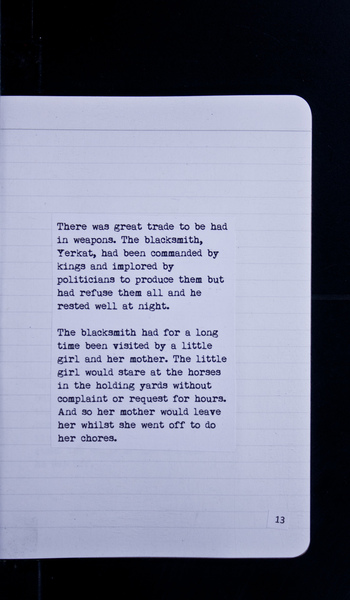 There was great trade to be had
in weapons. The blacksmith,
Yerkat, had been commanded by
kings and implored by
politicians to produce them but
had refuse them all and he
rested well at night.
The blacksmith had for a long
time been visited by a little
girl and her mother. The little
girl would stare at the horses
in the holding yards without
complaint or request for hours.
And so her mother would leave
her whilst she went off to do
her chores.
13